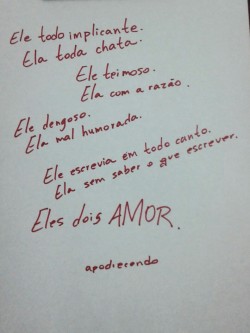 Ele todo implicante.
Ela toda chata.
Ele teimoso.
Ela com a razão.
Ele dengoso.
Ela mal humorada.
Ele escrevia em todo canto.
Ela sem saber o que escrever.
Eles dois AMOR.
apodierendo